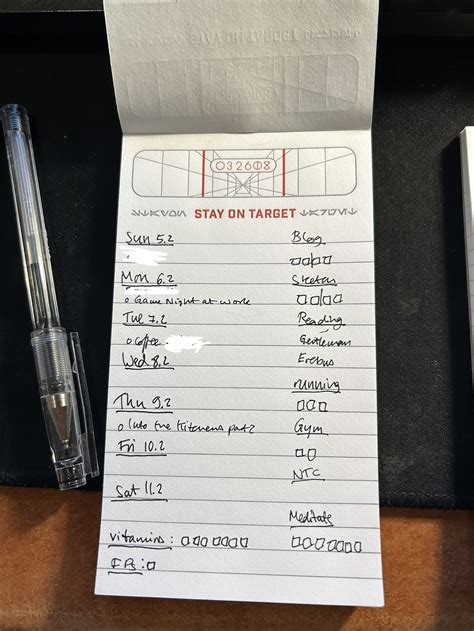 032608
STAY ON TARGET
Sun 5.2
Blog
Mon 6.2
Sketch
o Game Night at work
Tue 7.2
Reading
o Coffee
Gentleman
Wed 8.2
Erebus
running
Thu 9.2
o Into the Kitchens part 2
Gym
Fri 10.2
NTC
Sat 11.2
Meditate
Vitamins :